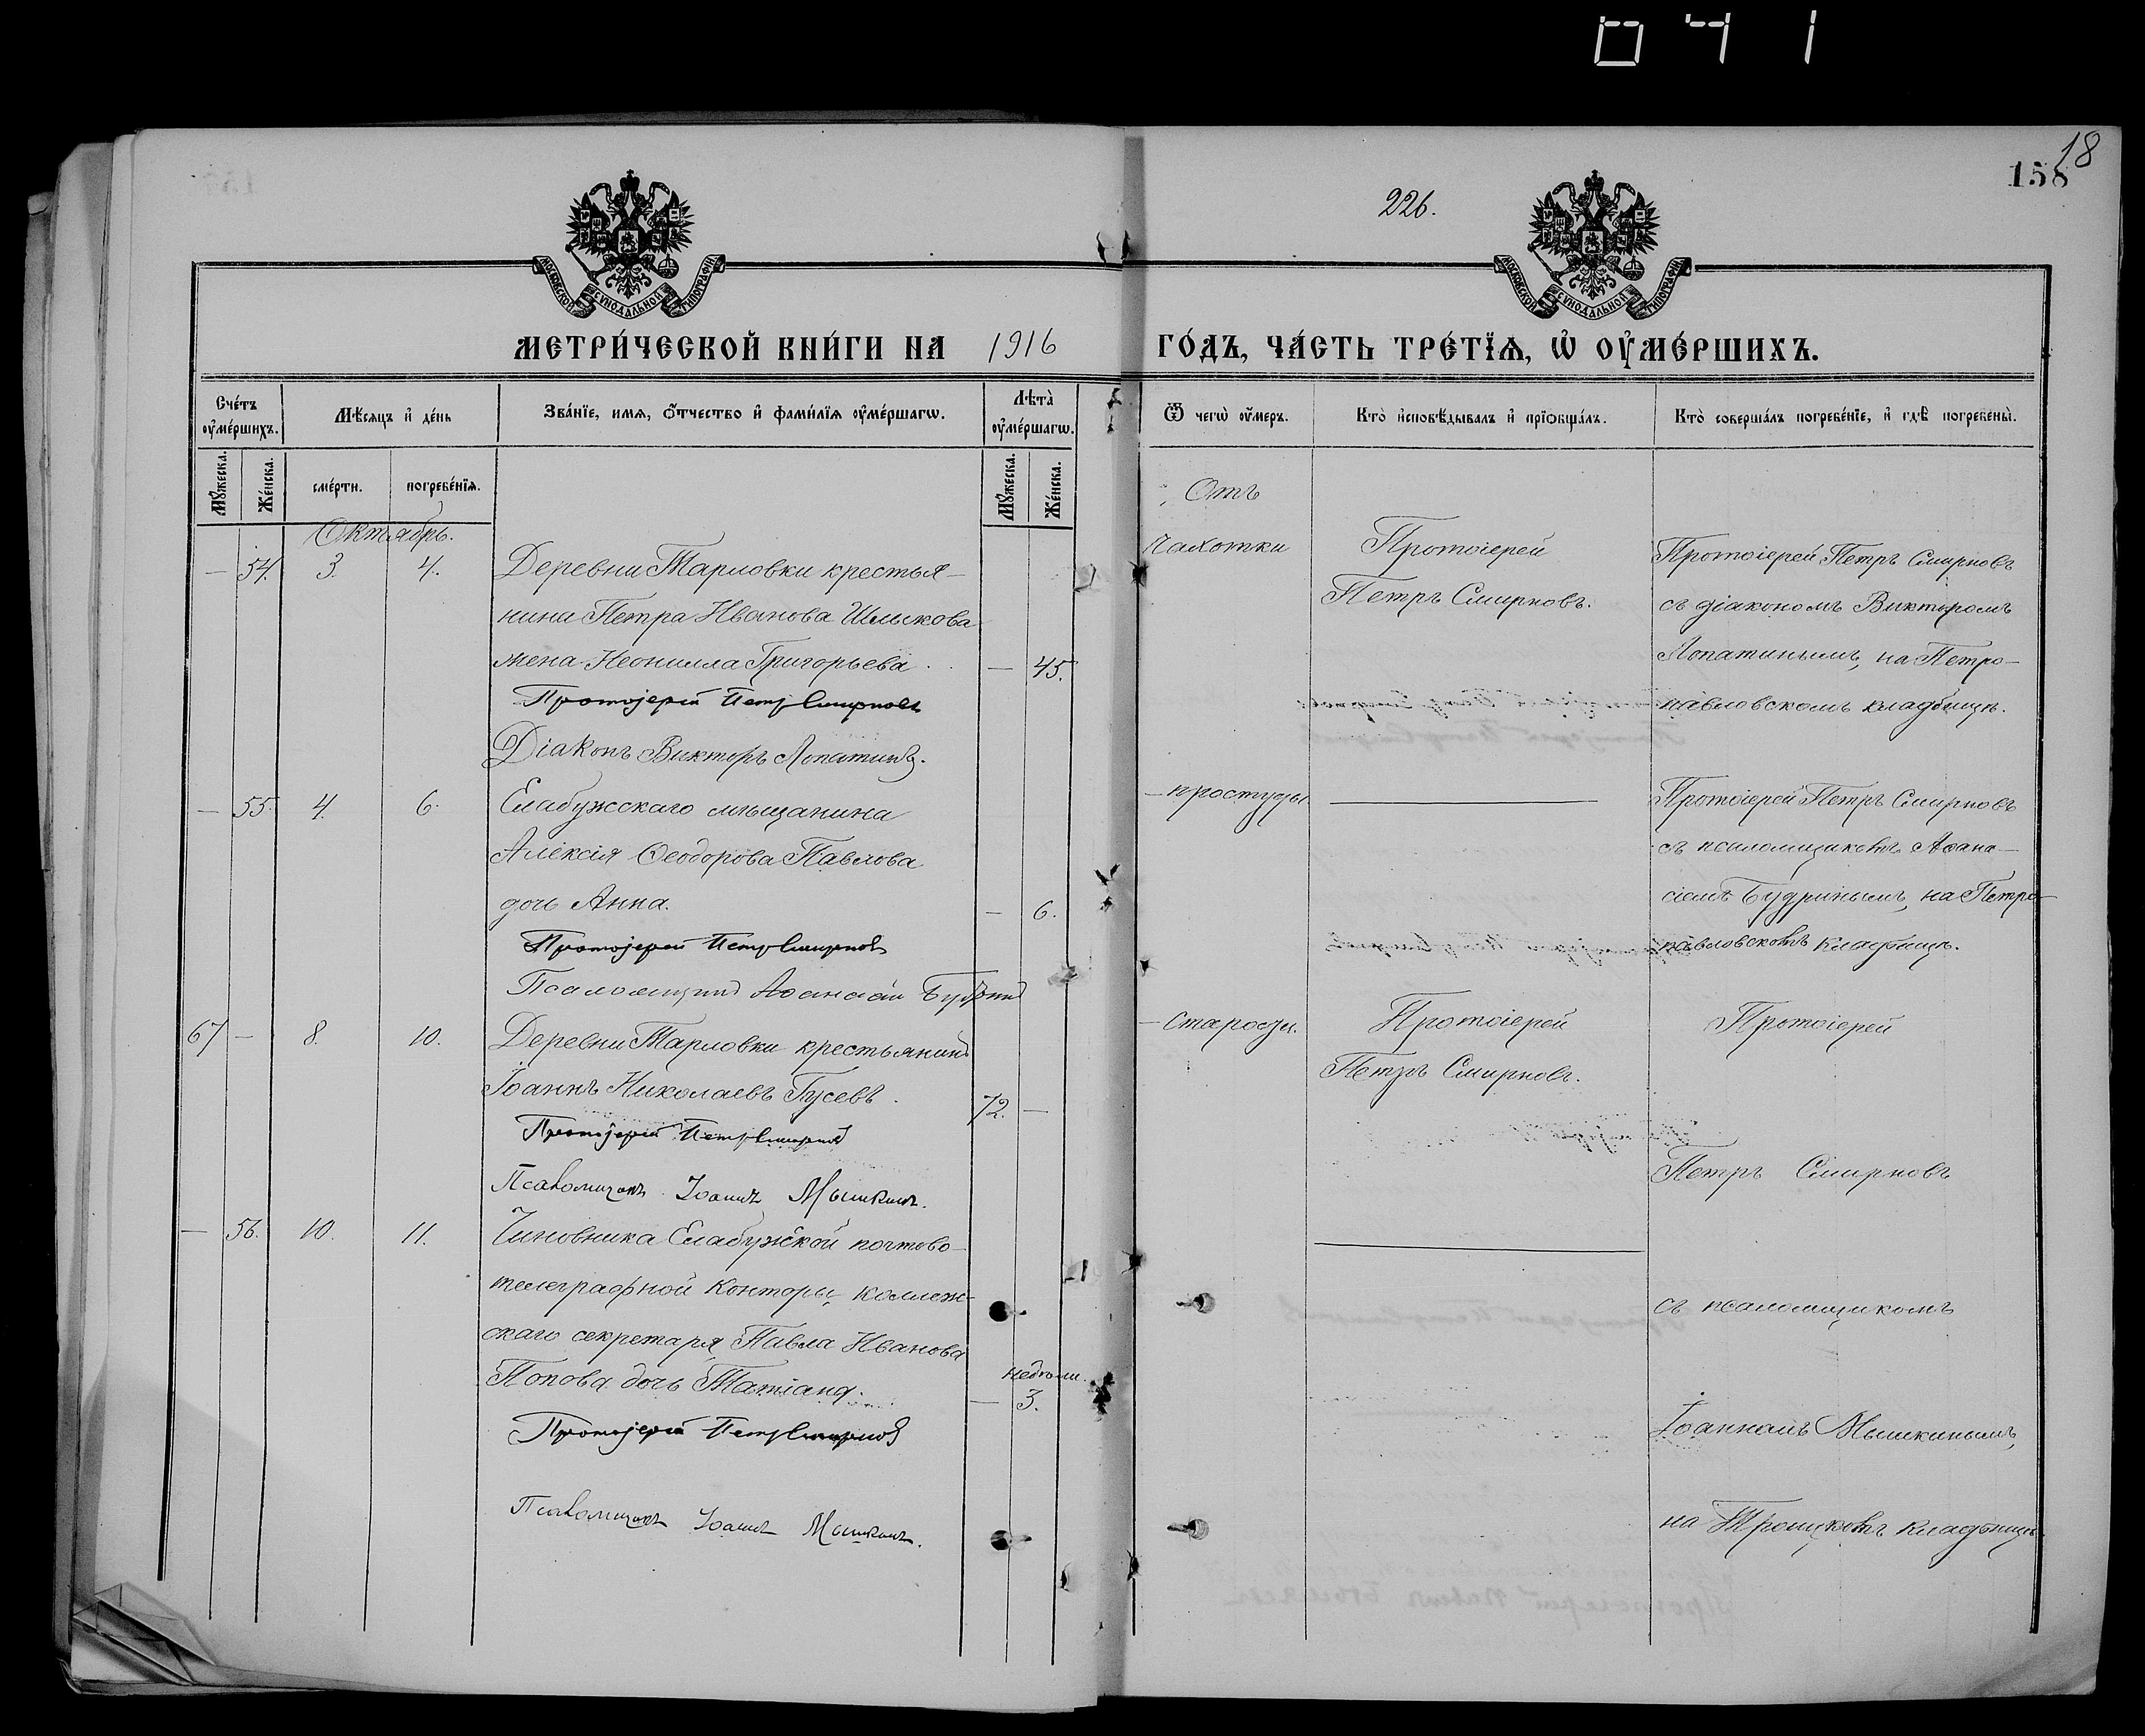 041
18
158
226.
МОСКОВСКОЙ СѴНОДАЛЬНОЙ ТИПОГРАФІИ
МОСКОВСКОЙ СѴНОДАЛЬНОЙ ТИПОГРАФІИ
МЕТРИ́ЧЕСКОЙ КНИ́ГИ НА 1916 ГО́ДЪ, ЧА́СТЬ ТРЕ́ТЇѦ, Ѡ҆ ОУ҆МЕ́РШИХЪ.
Сче́тъ оу҆ме́ршихъ.
Мѣ́сяцъ и҆ де́нь
Зва́нїе, имя, ѻ҆́тчество и҆ фами́лїя оу҆ме́ршагѡ.
Лѣта̀ оу҆ме́ршагѡ.
Ѿ чегѡ̀ оу҆́меръ.
Кто̀ и҆сповѣ́дывалъ и҆ прїѡбща́лъ.
Кто̀ соверша́лъ погребе́нїе, и҆ гдѣ̀ погребены̀.
Мꙋ́жеска.
Же́нска.
сме́рти.
погребе́нїя.
Мꙋ́жеска.
Же́нска.
Октябрь.
— 54. 3. 4.
Деревни Тарловки крестья-
нина Петра Иванова Шлыкова
жена Неонилла Григорьева. — 45.
Протоjерей Петръ Смирновъ
Діаконъ Викторъ Лопатинъ.
Отъ
чахотки
Протоіерей
Петръ Смирновъ.
Протоіерей Петръ Смирновъ
съ діакономъ Викторомъ
Лопатинымъ, на Петро-
павловскомъ кладбищѣ.
— 55. 4. 6.
Елабужскаго мѣщанина
Алексія Ѳеодорова Павлова
дочь Анна. — 6.
Протоjерей Петръ Смирновъ
Псаломщикъ Аѳанасій Будринъ
— простуды
Протоіерей Петръ Смирновъ
съ псаломщикомъ Аѳана-
сіемъ Будринымъ, на Петро-
павловскомъ кладбищѣ.
67 — 8. 10.
Деревни Тарловки крестьянинъ
Іоаннъ Николаевъ Гусевъ. 72. —
Протоjерей Петръ Смирновъ
Псаломщикъ Іоаннъ Мышкинъ.
— старости.
Протоіерей
Петръ Смирновъ.
Протоіерей
Петръ Смирновъ
— 56. 10. 11.
Чиновника Елабужской почтово-
телеграфной конторы, коллеж-
скаго секретаря Павла Иванова
Попова дочь Татіана. — недѣли. 3.
Протоjерей Петръ Смирновъ
Псаломщикъ Іоаннъ Мышкинъ.
съ псаломщикомъ
Іоанномъ Мышкинымъ,
на Троицкомъ кладбищѣ.